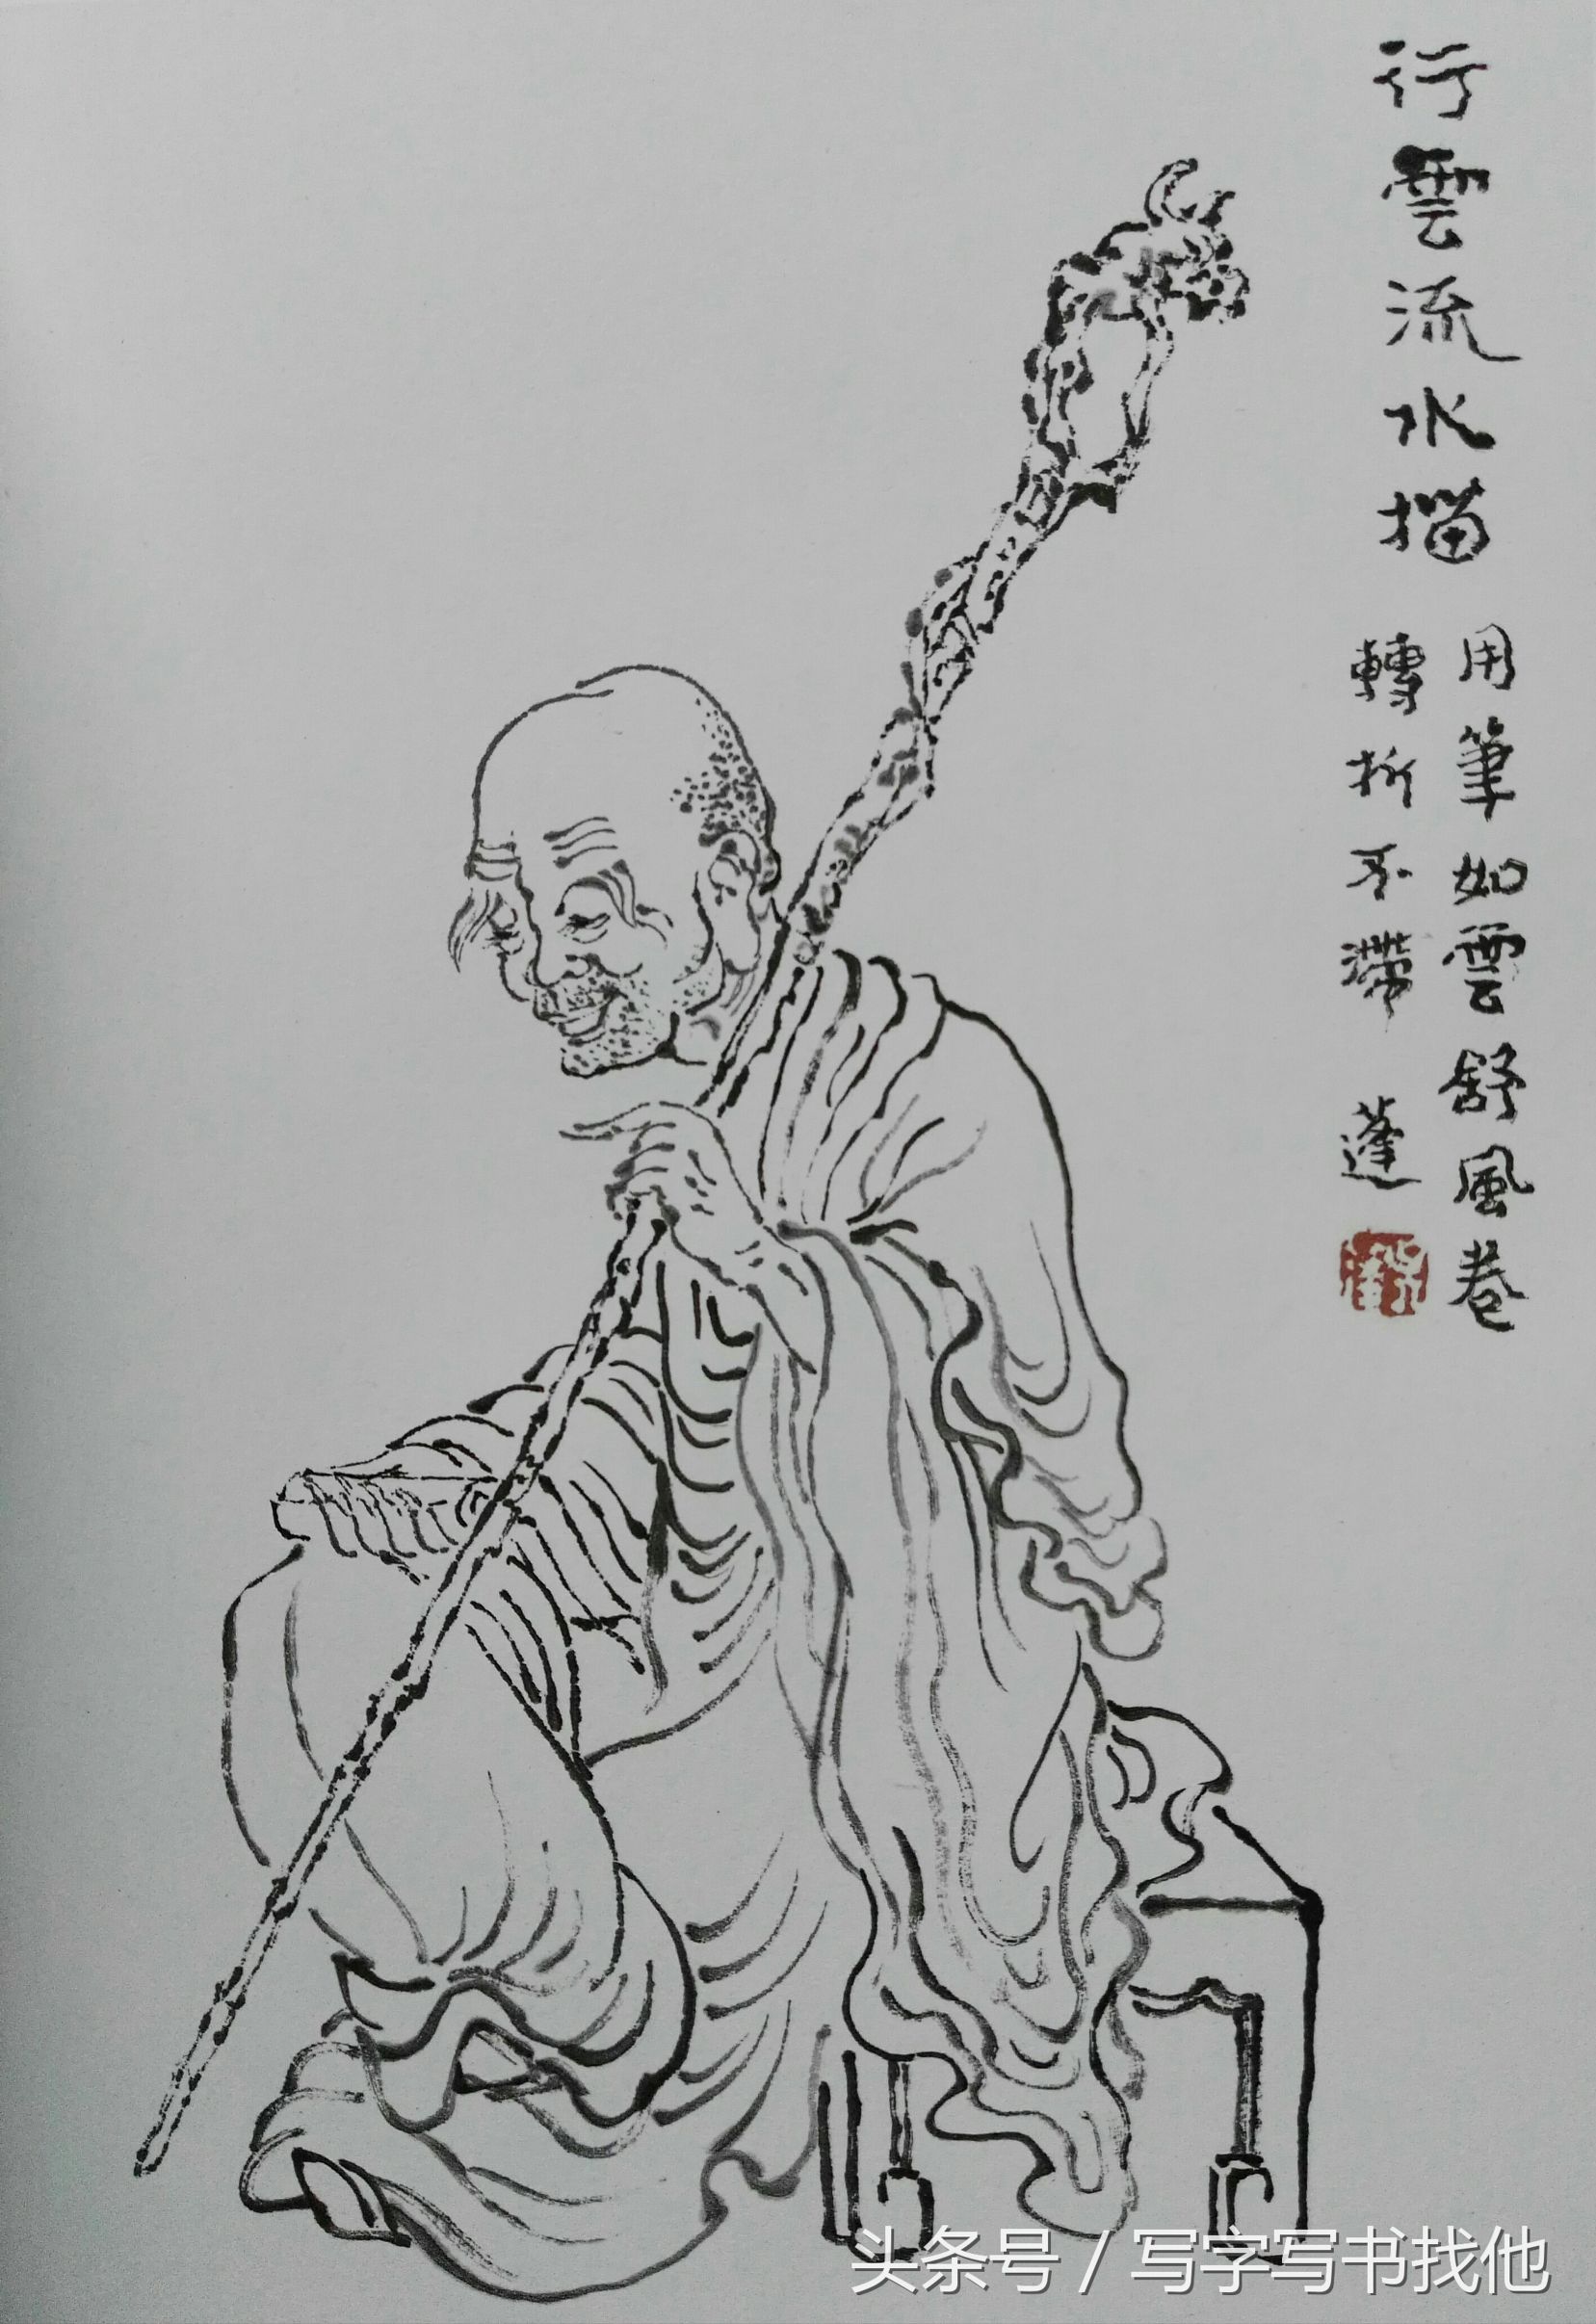 行雲流水描
用筆如雲舒風卷
轉折不滯 蓬
头条号 / 写字写书找他